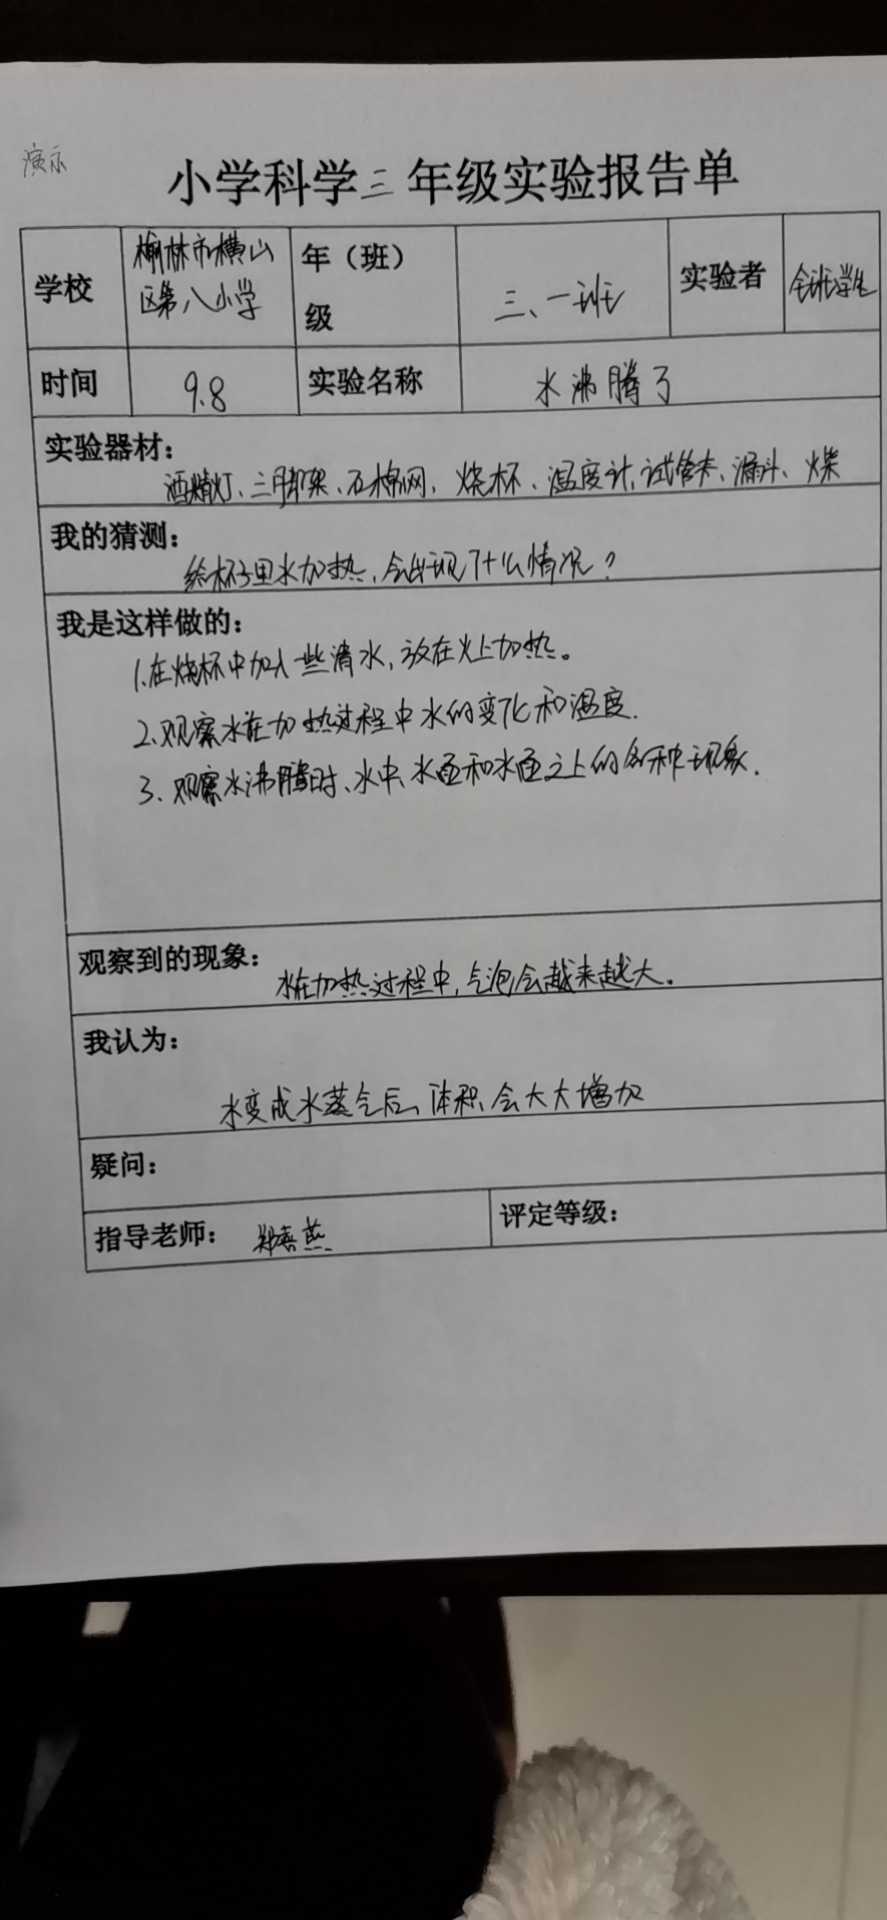 演示
小学科学三年级实验报告单
学校
榆林市横山
区第八小学
年（班）
级
三、一班
实验者
全班学生
时间
9.8
实验名称
水沸腾了
实验器材：
酒精灯、三脚架、石棉网、烧杯、温度计、试管夹、漏斗、火柴
我的猜测：
给杯子里水加热，会出现了什么情况？
我是这样做的：
1.在烧杯中加入一些清水，放在火上加热。
2.观察水在加热过程中水的变化和温度.
3.观察水沸腾时、水中、水面和水面之上的各种现象.
观察到的现象：
水在加热过程中，气泡会越来越大。
我认为：
水变成水蒸气后、体积会大大增加
疑问：
指导老师：
评定等级：